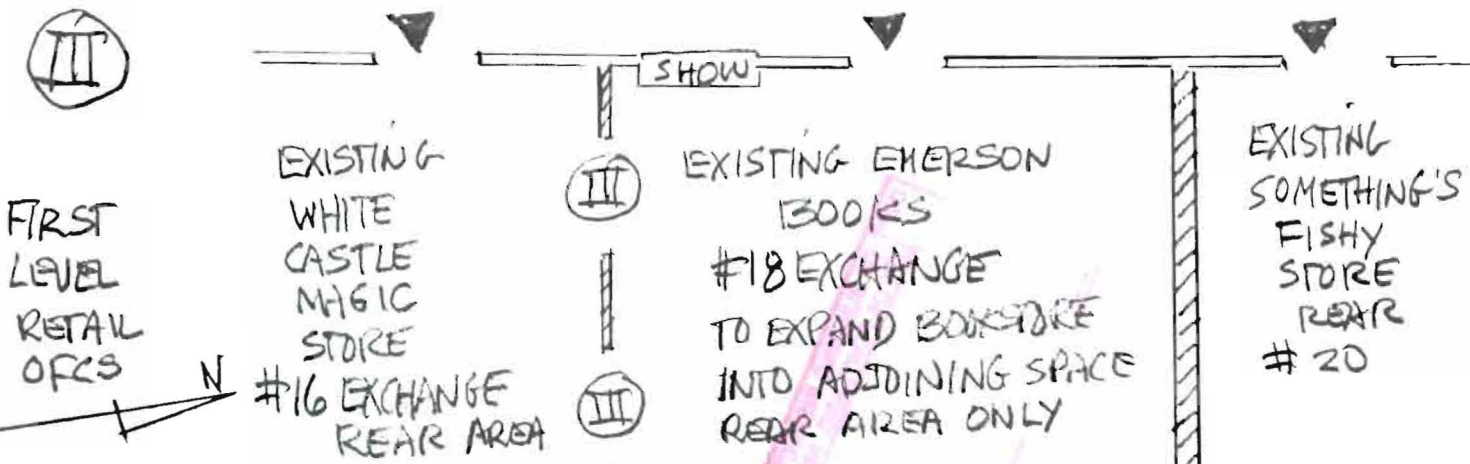 III
SHOW
FIRST
LEVEL
RETAIL
OFCS
N
EXISTING
WHITE
CASTLE
MAGIC
STORE
#16 EXCHANGE
REAR AREA
III
III
EXISTING EMERSON
BOOKS
#18 EXCHANGE
TO EXPAND BOOKSTORE
INTO ADJOINING SPACE
REAR AREA ONLY
EXISTING
SOMETHING'S
FISHY
STORE
REAR
# 20